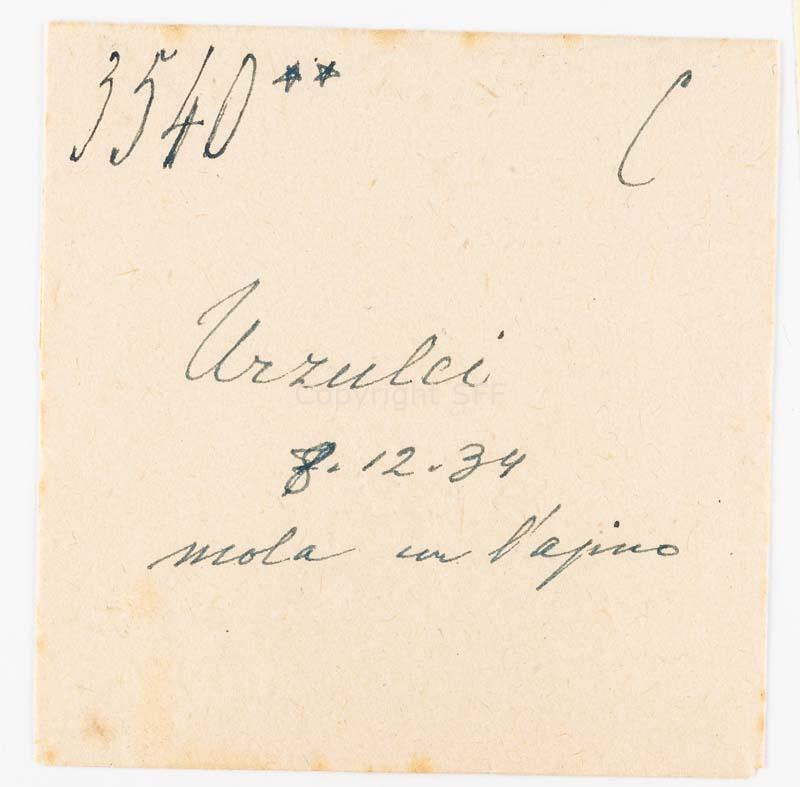 3540** C
Urzulei
Copyright SFF
8.12.34
mola cun l'asino